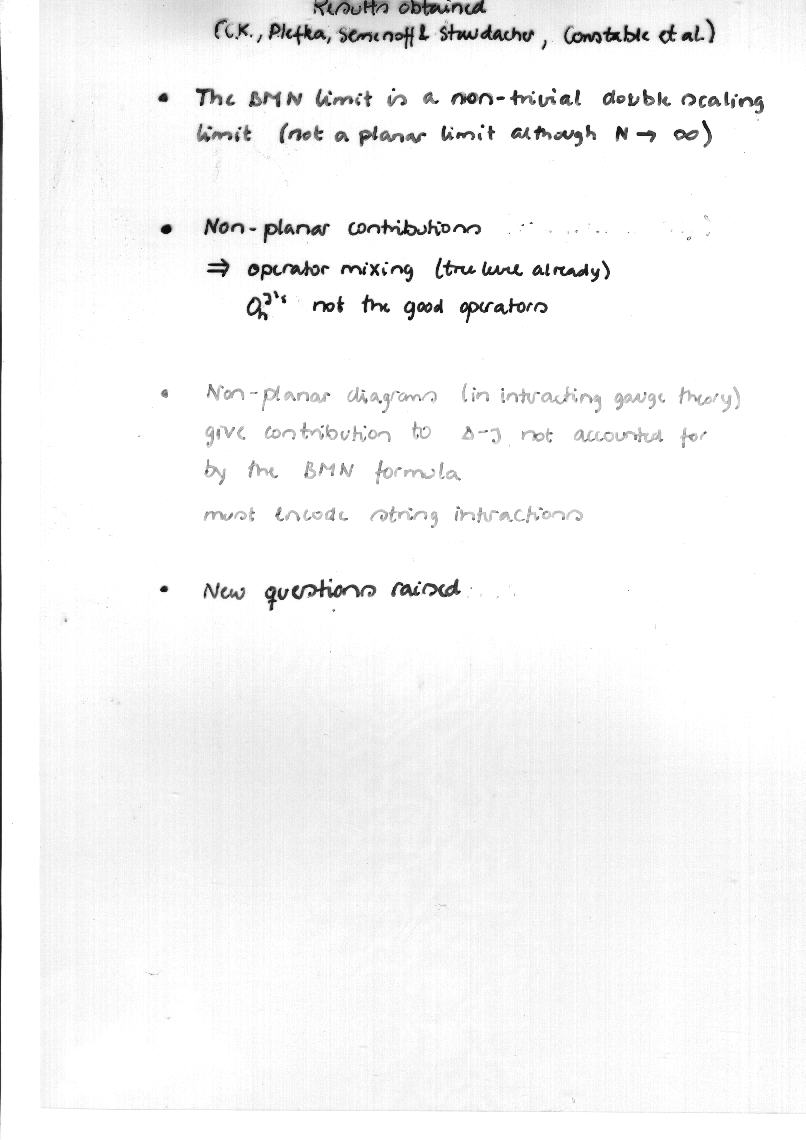 Results obtained
(C.K., Plefka, Semenoff & Staudacher, Constable et al.)
• The BMN limit is a non-trivial double scaling
limit (not a planar limit although N → ∞)
• Non-planar contributions
⇒ operator mixing (tree level already)
Oₙᴶ's not the good operators
• Non-planar diagrams (in interacting gauge theory)
give contribution to Δ-J not accounted for
by the BMN formula
must encode string interactions
• New questions raised